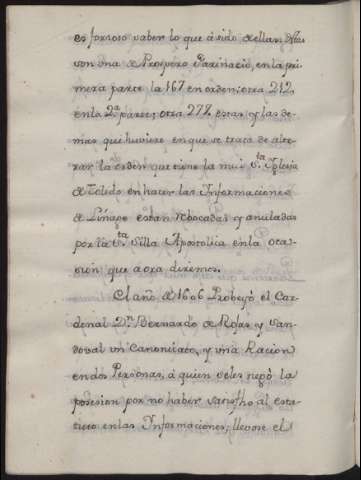 es forzoso saber lo que á sido de ellas. Estas
son una de Prospero Farinacio, en la pri
mera parte la 167 en orden; otra 212.
en la 2.ª parte; otra 278. estas y las de-
mas que huviere en que se trata de alte-
rar la orden que tiene la mui S.ta Iglesia
de Toledo en hacer las Informaciones
de Linage estan rebocadas y anuladas
por la S.ta Silla Apostolica en la oca-
sion que aora diremos.
El año de 1606 Probeyó el Car-
denal D.n Bernardo de Rojas y San-
doval un Canonicato, y una Racion
en dos Personas, á quien se les negó la
posesion por no haber satisfho al esta-
tuto en las Informaciones; llevose el